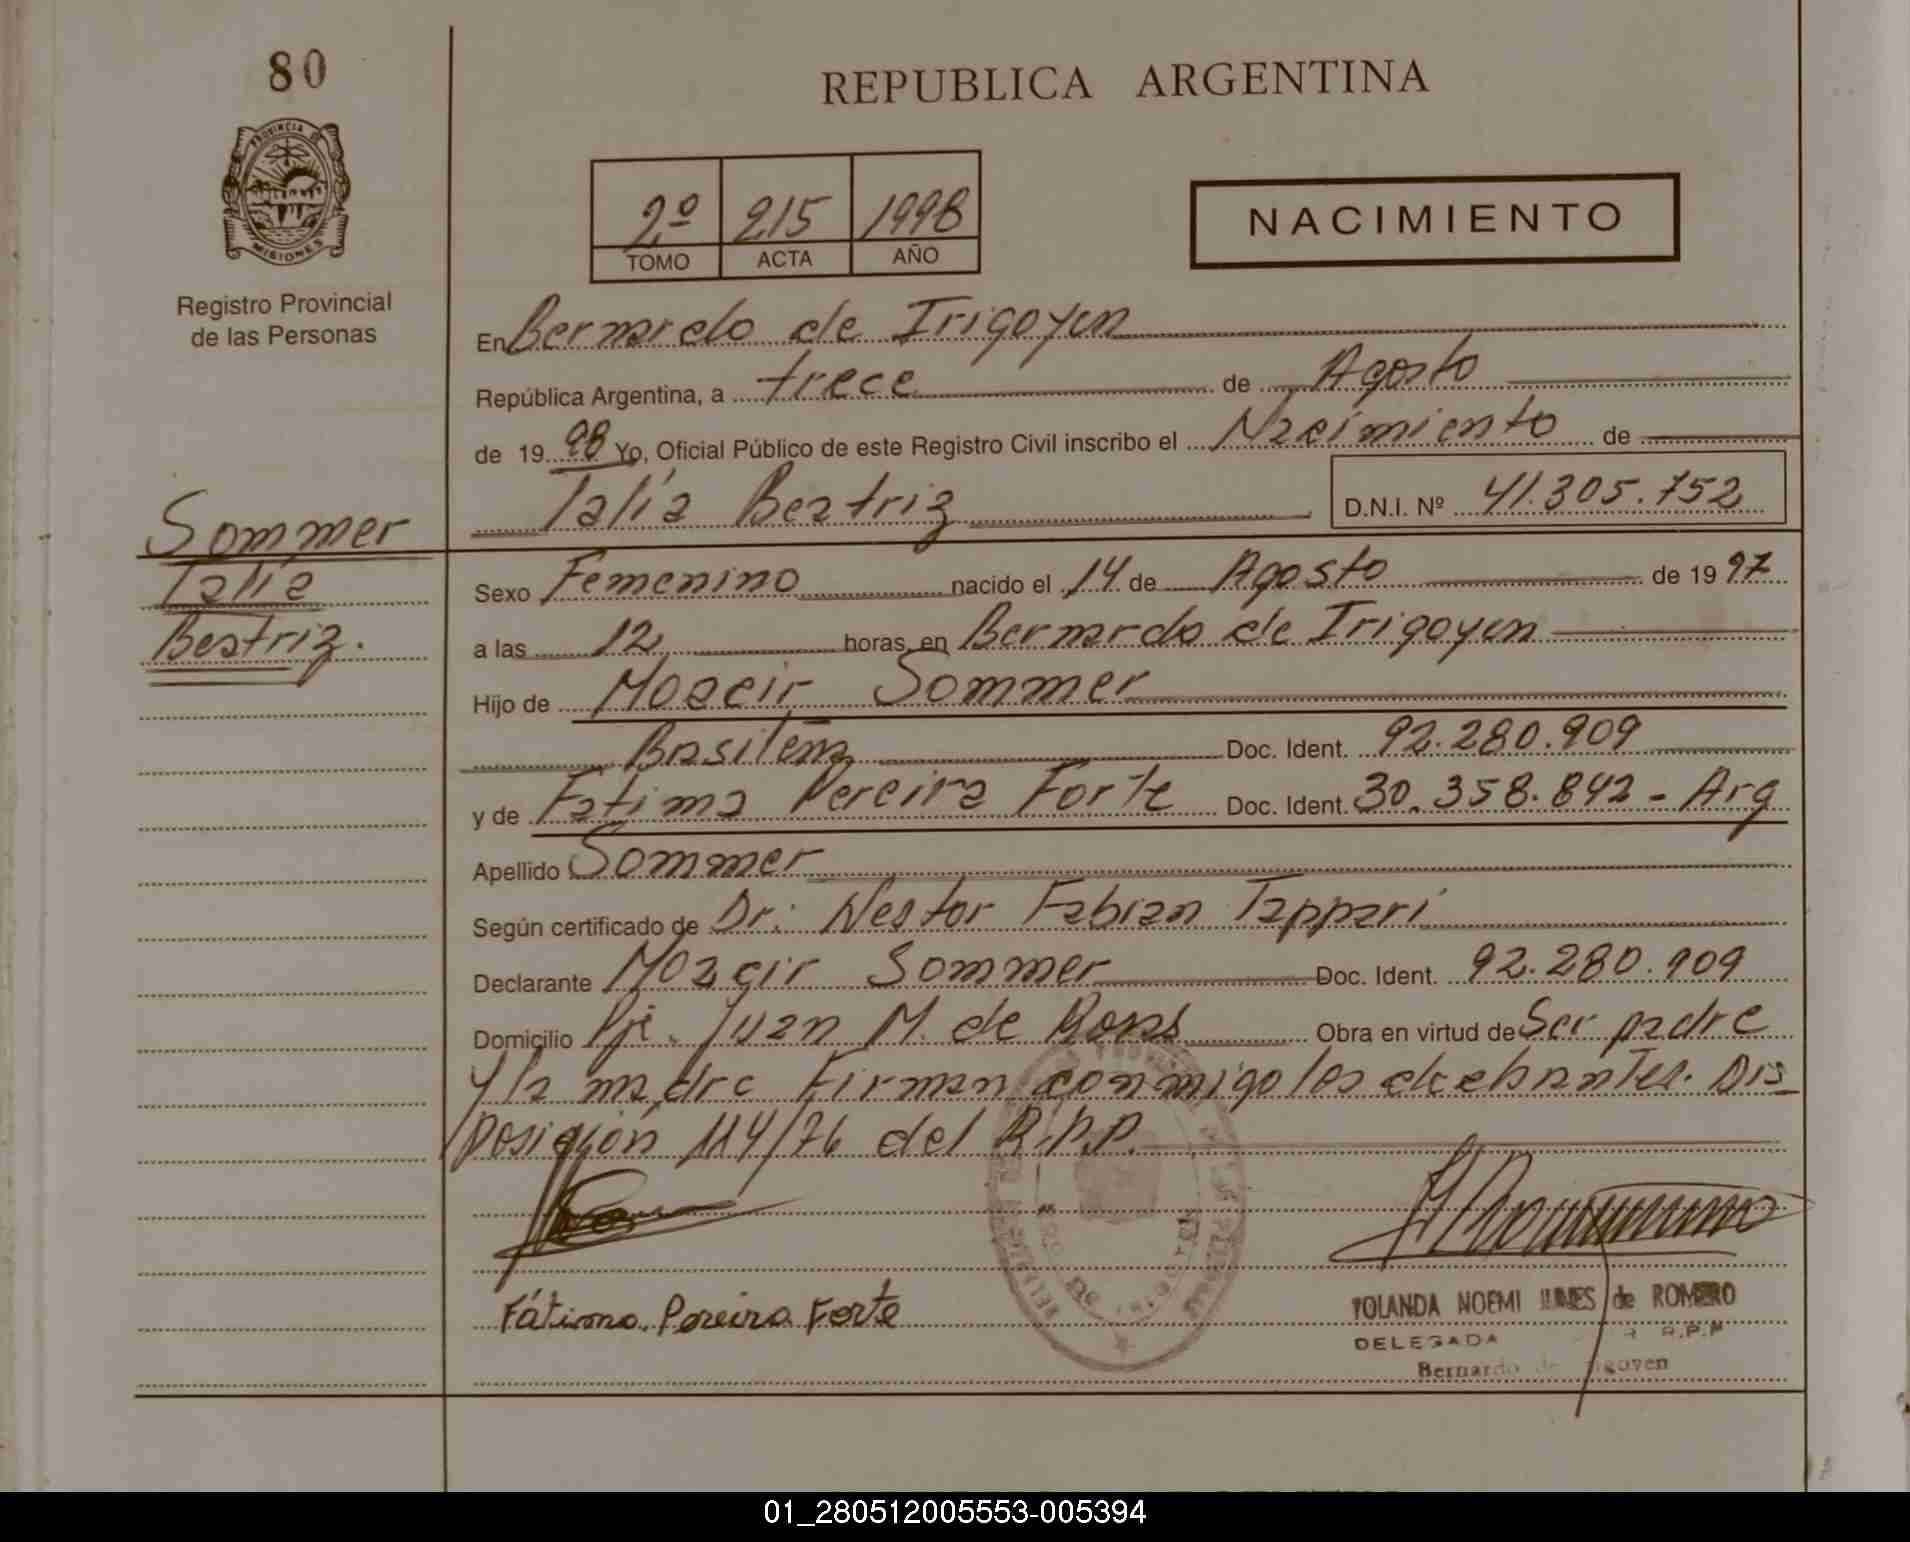 80
REPUBLICA ARGENTINA
PROVINCIA DE
MISIONES
2º 215 1998
TOMO ACTA AÑO
NACIMIENTO
Registro Provincial
de las Personas
En Bernardo de Irigoyen
República Argentina, a trece de Agosto
de 19 98 Yo, Oficial Público de este Registro Civil inscribo el Nacimiento de
Talía Beatriz D.N.I. Nº 41.305.752
Sommer
Talía
Beatriz.
Sexo Femenino nacido el 14 de Agosto de 19 97
a las 12 horas, en Bernardo de Irigoyen
Hijo de Moacir Sommer
Doc. Ident. 92.280.909
y de Fatima Pereira Forte Doc. Ident. 30.358.842 - Arg
Apellido Sommer
Según certificado de Dr: Nestor Fabian Tappari
Declarante Moacir Sommer Doc. Ident. 92.280.909
Domicilio Pje. Juan M. de Rosas Obra en virtud de Ser padre
y la madre Firman conmigo los Dis
posición 114/76 del R.P.P.
Fátima Pereira Forte
YOLANDA NOEMI de ROMERO
DELEGADA R.P.P
Bernardo de Irigoyen
01_280512005553-005394